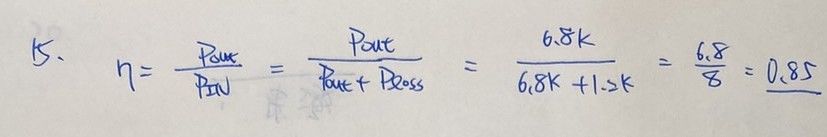 15. η = Pout/PIN = Pout/(Pout + Ploss) = 6.8K/(6.8K + 1.2K) = 6.8/8 = 0.85